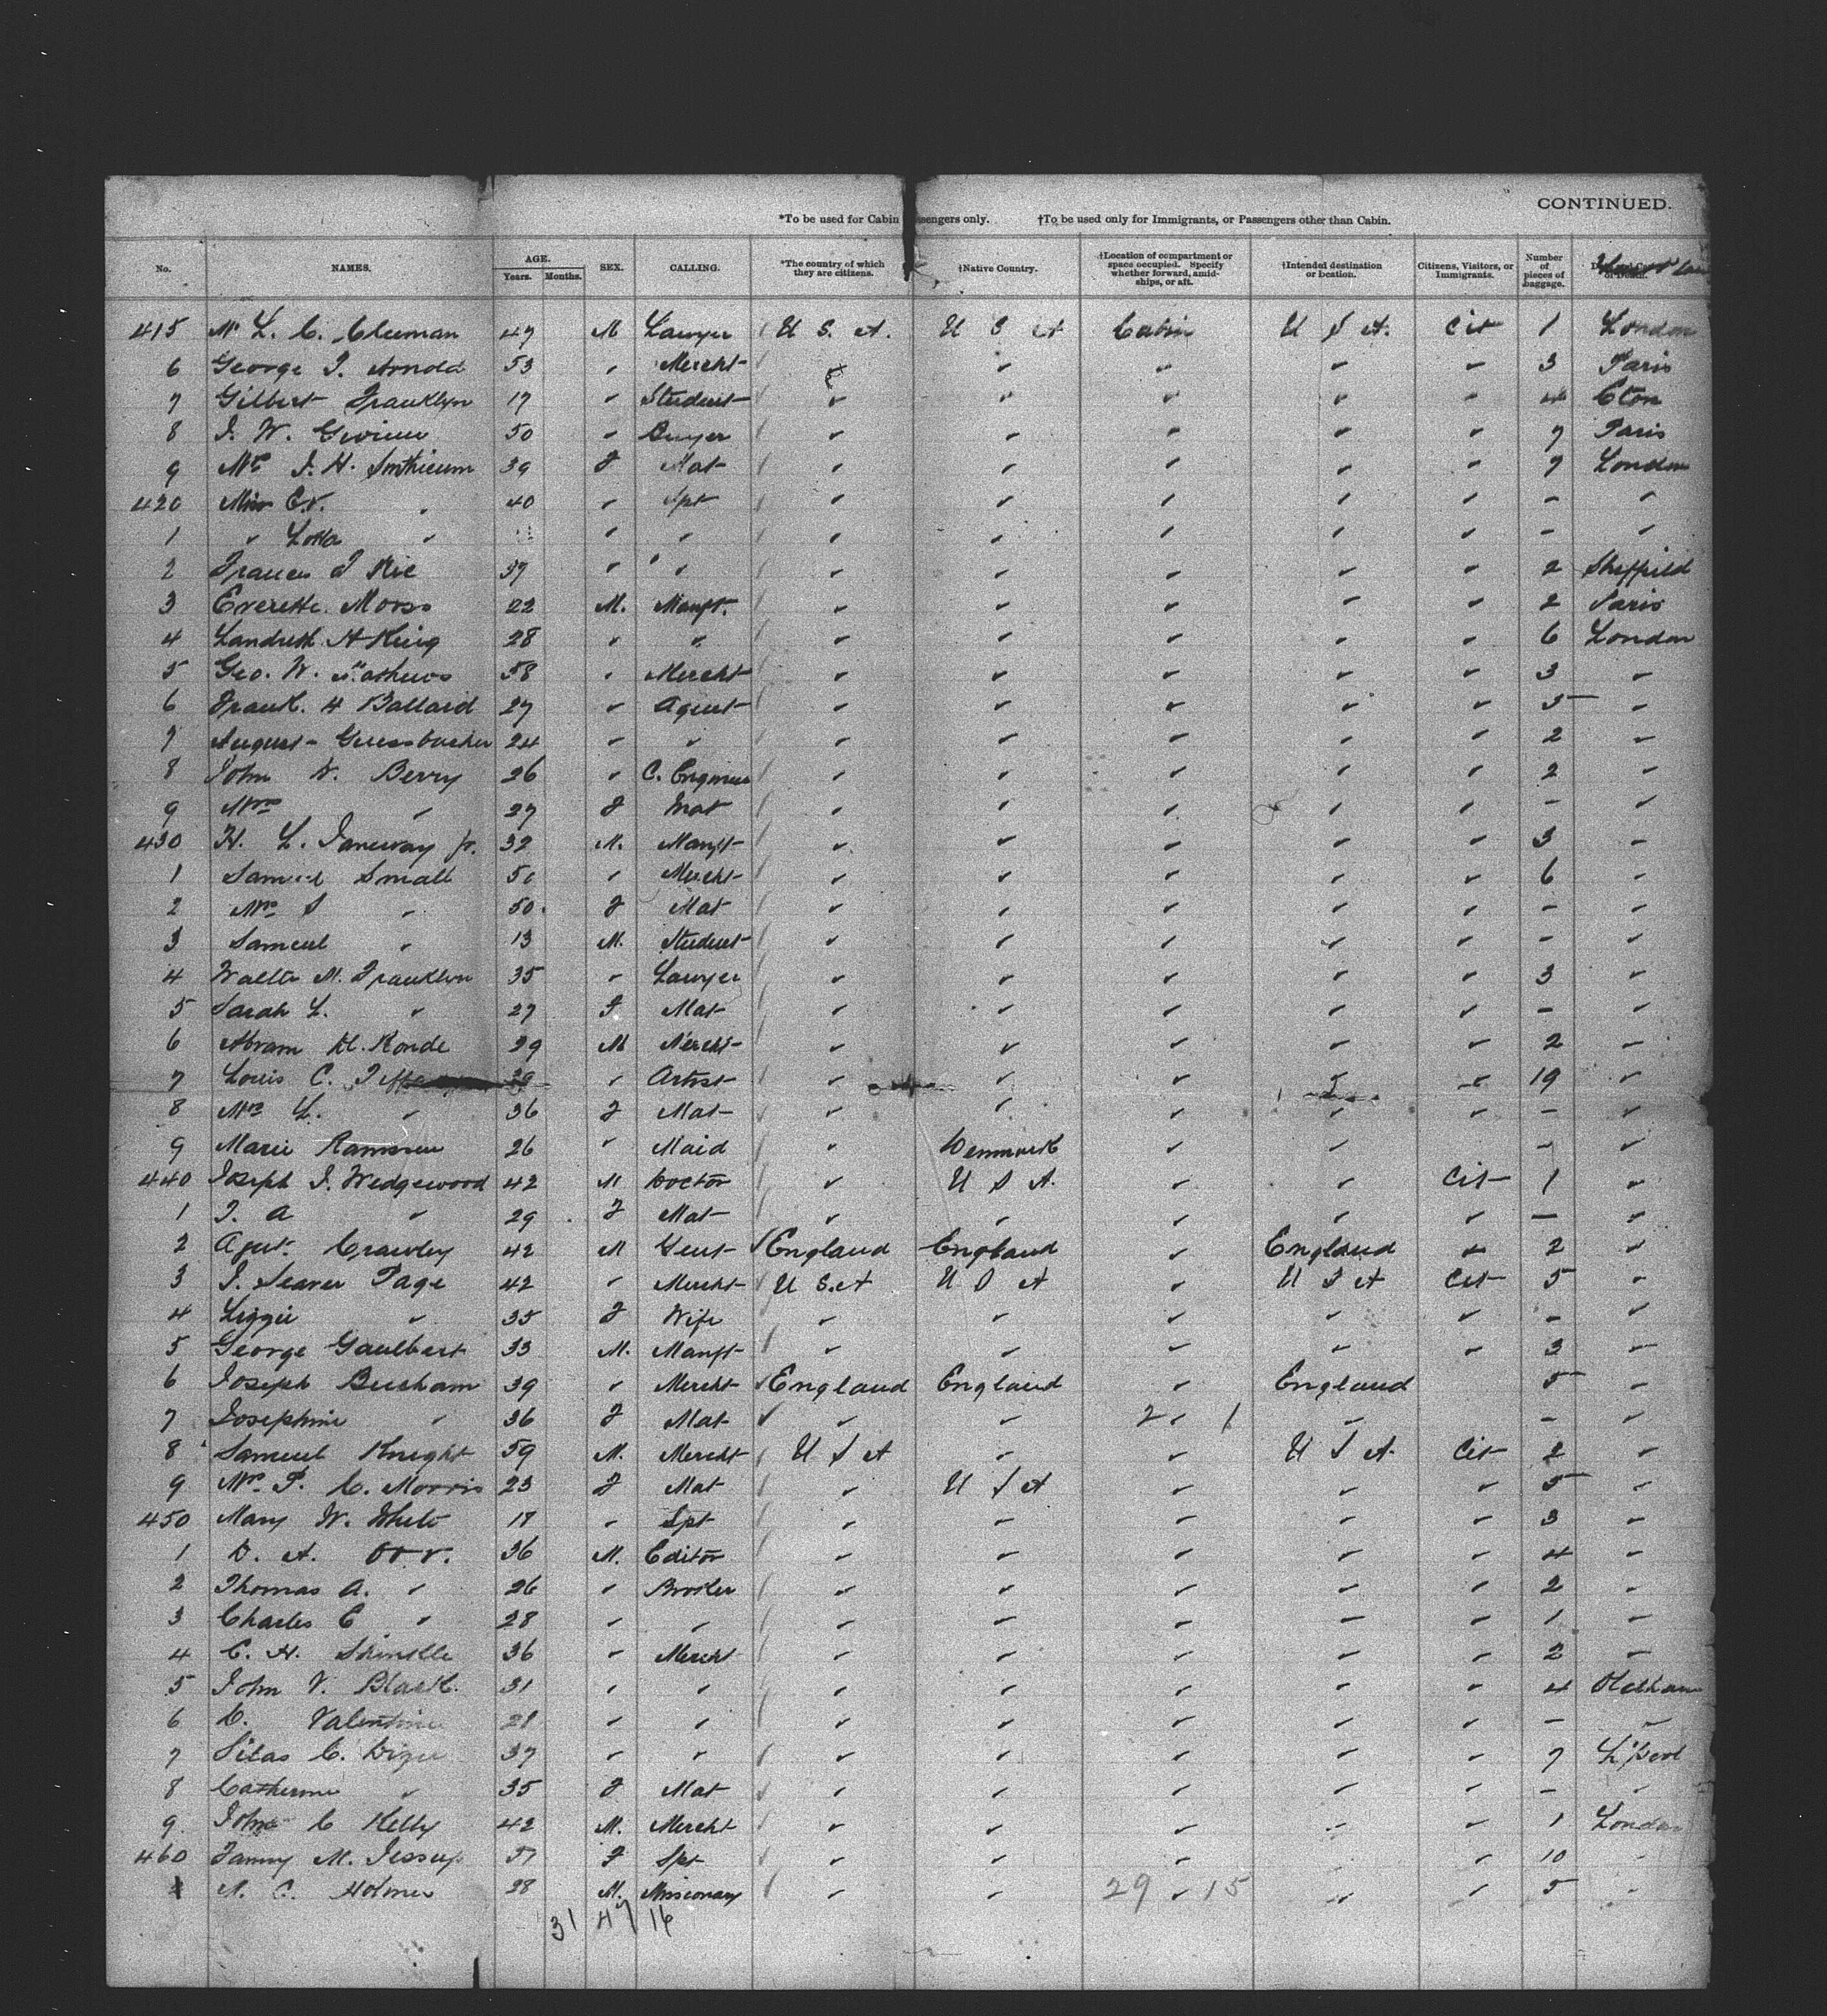 CONTINUED.
*To be used for Cabin Passengers only. †To be used only for Immigrants, or Passengers other than Cabin.
No. NAMES. AGE. Years. Months. SEX. CALLING. *The country of which they are citizens. †Native Country. †Location of compartment or space occupied. Specify whether forward, amidships, or aft. †Intended destination or location. Citizens, Visitors, or Immigrants. Number of pieces of baggage.
415 Mr L. C. Cleeman 47 M Lawyer U S. A. U S A Cabin U S A. Cit 1 London
6 George J. Arnold 53 " Mercht " " " " " 3 Paris
7 Gilbert Franklyn 17 " Student " " " " " 4 Eton
8 J. W. 50 " Buyer " " " " " 7 Paris
9 Mrs J. H. Smithicum 39 F Mat " " " " " 7 London
420 Miss E.V. " 40 " Spt " " " " " - "
1 " Lotta " " " " " " " " - "
2 Frances J Kie 37 " " " " " " " 2 Sheffield
3 Everette Morss 22 M. Manft. " " " " " 2 Paris
4 Landreth H King 28 " " " " " " " 6 London
5 Geo. W. Mathews 58 " Mercht " " " " " 3 "
6 Frank. H Ballard 27 " Agent " " " " " 5 "
7 August 24 " " " " " " " 2 "
8 John D. Berry 26 " C. Engineer " " " " " 2 "
9 Mrs " 27 F Mat " " " " " - "
430 H. L. Janeway Jr. 32 M. Manft " " " " " 3 "
1 Samuel Small 50 " Mercht " " " " " 6 "
2 Mrs S " 50 F Mat " " " " " - "
3 Samuel " 13 M. Student " " " " " - "
4 Walter M. Franklyn 35 " Lawyer " " " " " 3 "
5 Sarah L. " 27 F Mat " " " " " - "
6 Abram H. Ronde 29 M Mercht " " " " " 2 "
7 Louis C. Tiffany 39 " Artist " " " " " 19 "
8 Mrs L. " 36 F Mat " " " " " - "
9 Marie Ramssen 26 " Maid " Denmark " " - "
440 Joseph J. Wedgewood 42 M Doctor " U S A. " " Cit 1 "
1 J. A " 29 F Mat " " " " " - "
2 Agust. Crawley 42 M Gent England England " England " 2 "
3 J. Seaver Page 42 " Mercht U S.A U S A " U S A Cit 5 "
4 Lizzie " 35 F Wife " " " " " - "
5 George Gaulbert 33 M. Manft " " " " " 3 "
6 Joseph Beesham 39 " Mercht England England " England 5 "
7 Josephine " 36 F Mat " " 2 " 1 " - "
8 Samuel Knight 59 M. Mercht U S A " " U S A. Cit 2 "
9 Mrs P. C. Morris 23 F Mat " U S A " " " 5 "
450 Mary W. White 18 " Spt " " " " " 3 "
1 D. A. Orr. 36 M. Editor " " " " " 4 "
2 Thomas A. " 26 " Broker " " " " " 2 "
3 Charles E " 28 " " " " " " " 1 "
4 C. H. Shinkle 36 " Mercht " " " " " 2 "
5 John V. Black. 31 " " " " " " " 4 Oldham
6 D. Valentine 28 " " " " " " " - "
7 Silas C. 37 " " " " " " " 7 L'pool
8 Catherine " 35 F Mat " " " " " - "
9 John C Kelly 42 M. Mercht " " " " " 1 London
460 Fanny M. Jessup F Spt " " " " " 10 "
1 N. C. Holmes 28 M. Missionary " " 29 " 15 " " 5 "
31 47 16